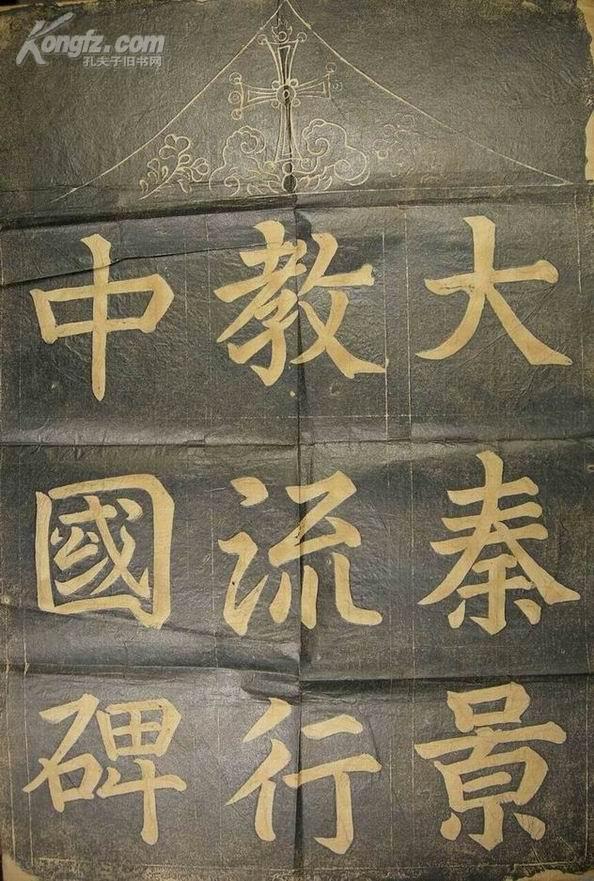 Kongfz.com
孔夫子旧书网
大秦景
教流行
中國碑